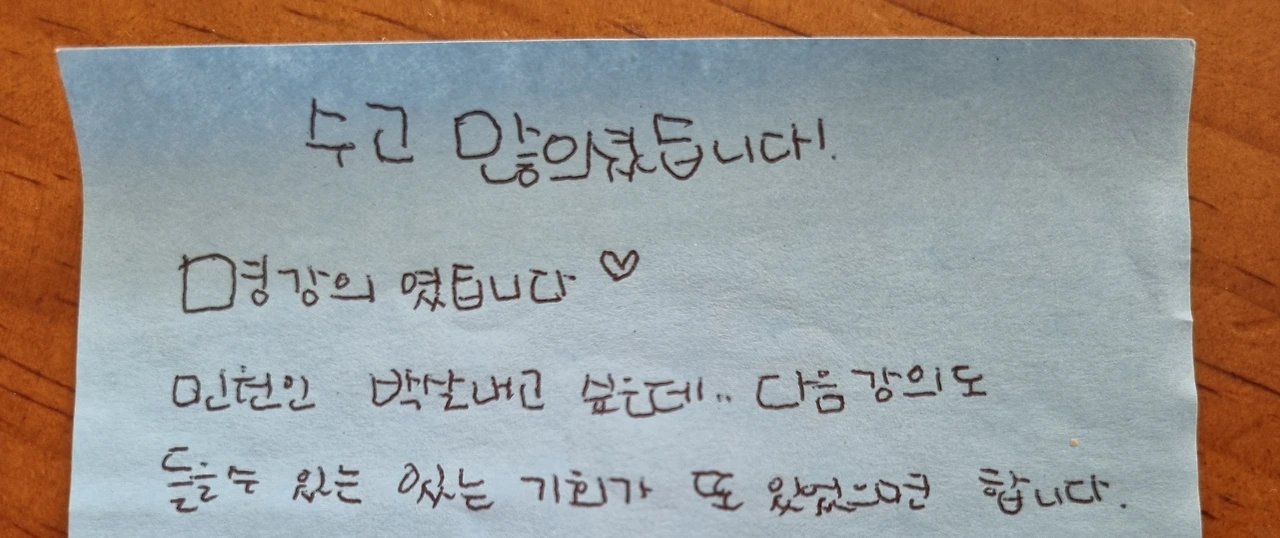 수고 많의셨듭니다!
명강의 였팁니다 ♡
민현인 박살내고 싶은데.. 다음강의도
들을수 있는 있는 기회가 또 있었으면 합니다.